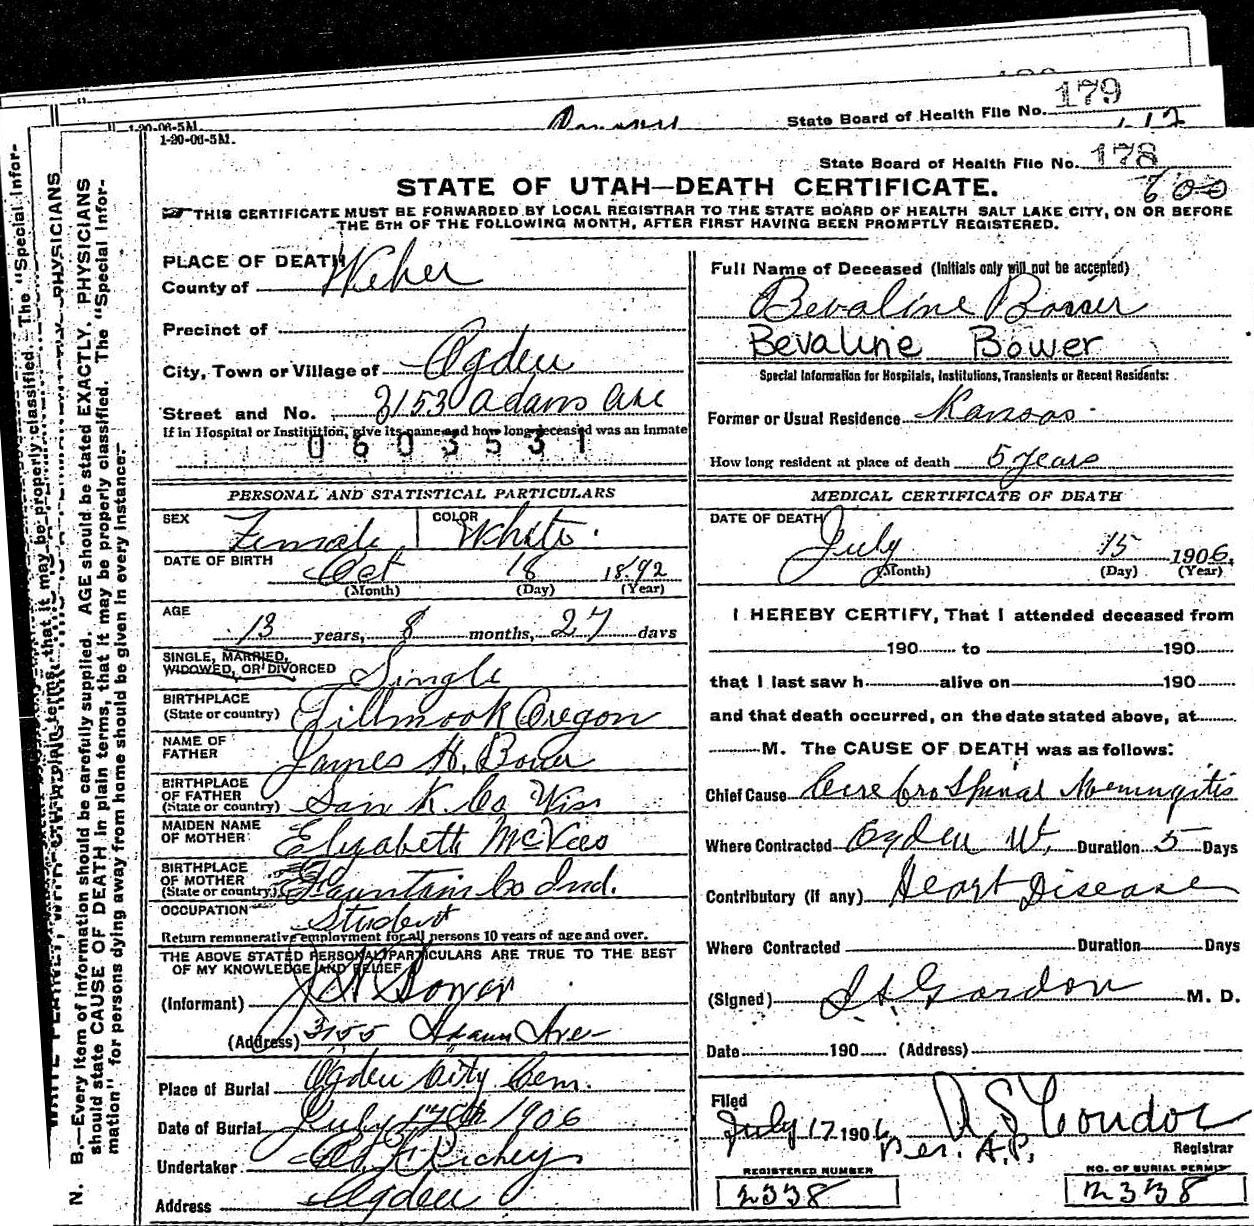 State Board of Health File No. 179
1-20-06-5M.
1-20-06-5M.
State Board of Health File No. 178
600
STATE OF UTAH—DEATH CERTIFICATE.
THIS CERTIFICATE MUST BE FORWARDED BY LOCAL REGISTRAR TO THE STATE BOARD OF HEALTH SALT LAKE CITY, ON OR BEFORE
THE 5TH OF THE FOLLOWING MONTH, AFTER FIRST HAVING BEEN PROMPTLY REGISTERED.
PLACE OF DEATH
County of Weber
Precinct of
City, Town or Village of Ogden
Street and No. 3153 Adams Ave
If in Hospital or Institution, give its name and how long deceased was an inmate
0603531
PERSONAL AND STATISTICAL PARTICULARS
SEX Female COLOR White.
DATE OF BIRTH Oct 18 1892
(Month) (Day) (Year)
AGE
13 years, 8 months, 27 days
SINGLE, MARRIED,
WIDOWED, OR DIVORCED Single
BIRTHPLACE
(State or country) Tillmook Oregon
NAME OF
FATHER James H. Bower
BIRTHPLACE
OF FATHER
(State or country) San K. Co Wiss
MAIDEN NAME
OF MOTHER Elizabeth McVees
BIRTHPLACE
OF MOTHER
(State or country) Fountain Co Ind.
OCCUPATION Student
Return remunerative employment for all persons 10 years of age and over.
THE ABOVE STATED PERSONAL PARTICULARS ARE TRUE TO THE BEST
OF MY KNOWLEDGE AND BELIEF
(Informant) J H Bower
(Address) 3155 Adams Ave
Place of Burial Ogden City Cem.
Date of Burial July 17th 1906
Undertaker Richey
Address Ogden
Full Name of Deceased (Initials only will not be accepted)
Bevaline Bower
Bevaline Bower
Special Information for Hospitals, Institutions, Transients or Recent Residents:
Former or Usual Residence Kansas.
How long resident at place of death 5 years
MEDICAL CERTIFICATE OF DEATH
DATE OF DEATH
July 15 1906.
(Month) (Day) (Year)
I HEREBY CERTIFY, That I attended deceased from
190 to 190
that I last saw h alive on 190
and that death occurred, on the date stated above, at
M. The CAUSE OF DEATH was as follows:
Chief Cause Cerebro Spinal Meningitis
Where Contracted Ogden Ut. Duration 5 Days
Contributory (if any) Heart Disease
Where Contracted Duration Days
(Signed) Gordon M. D.
Date 190 (Address)
Filed
July 17 1906 Condor
Per. A.P. Registrar
REGISTERED NUMBER
2338
NO. OF BURIAL PERMIT
2338
N. B.—Every item of information should be carefully supplied. AGE should be stated EXACTLY. PHYSICIANS
should state CAUSE OF DEATH in plain terms, that it may be properly classified. The "Special Infor-
mation" for persons dying away from home should be given in every instance.